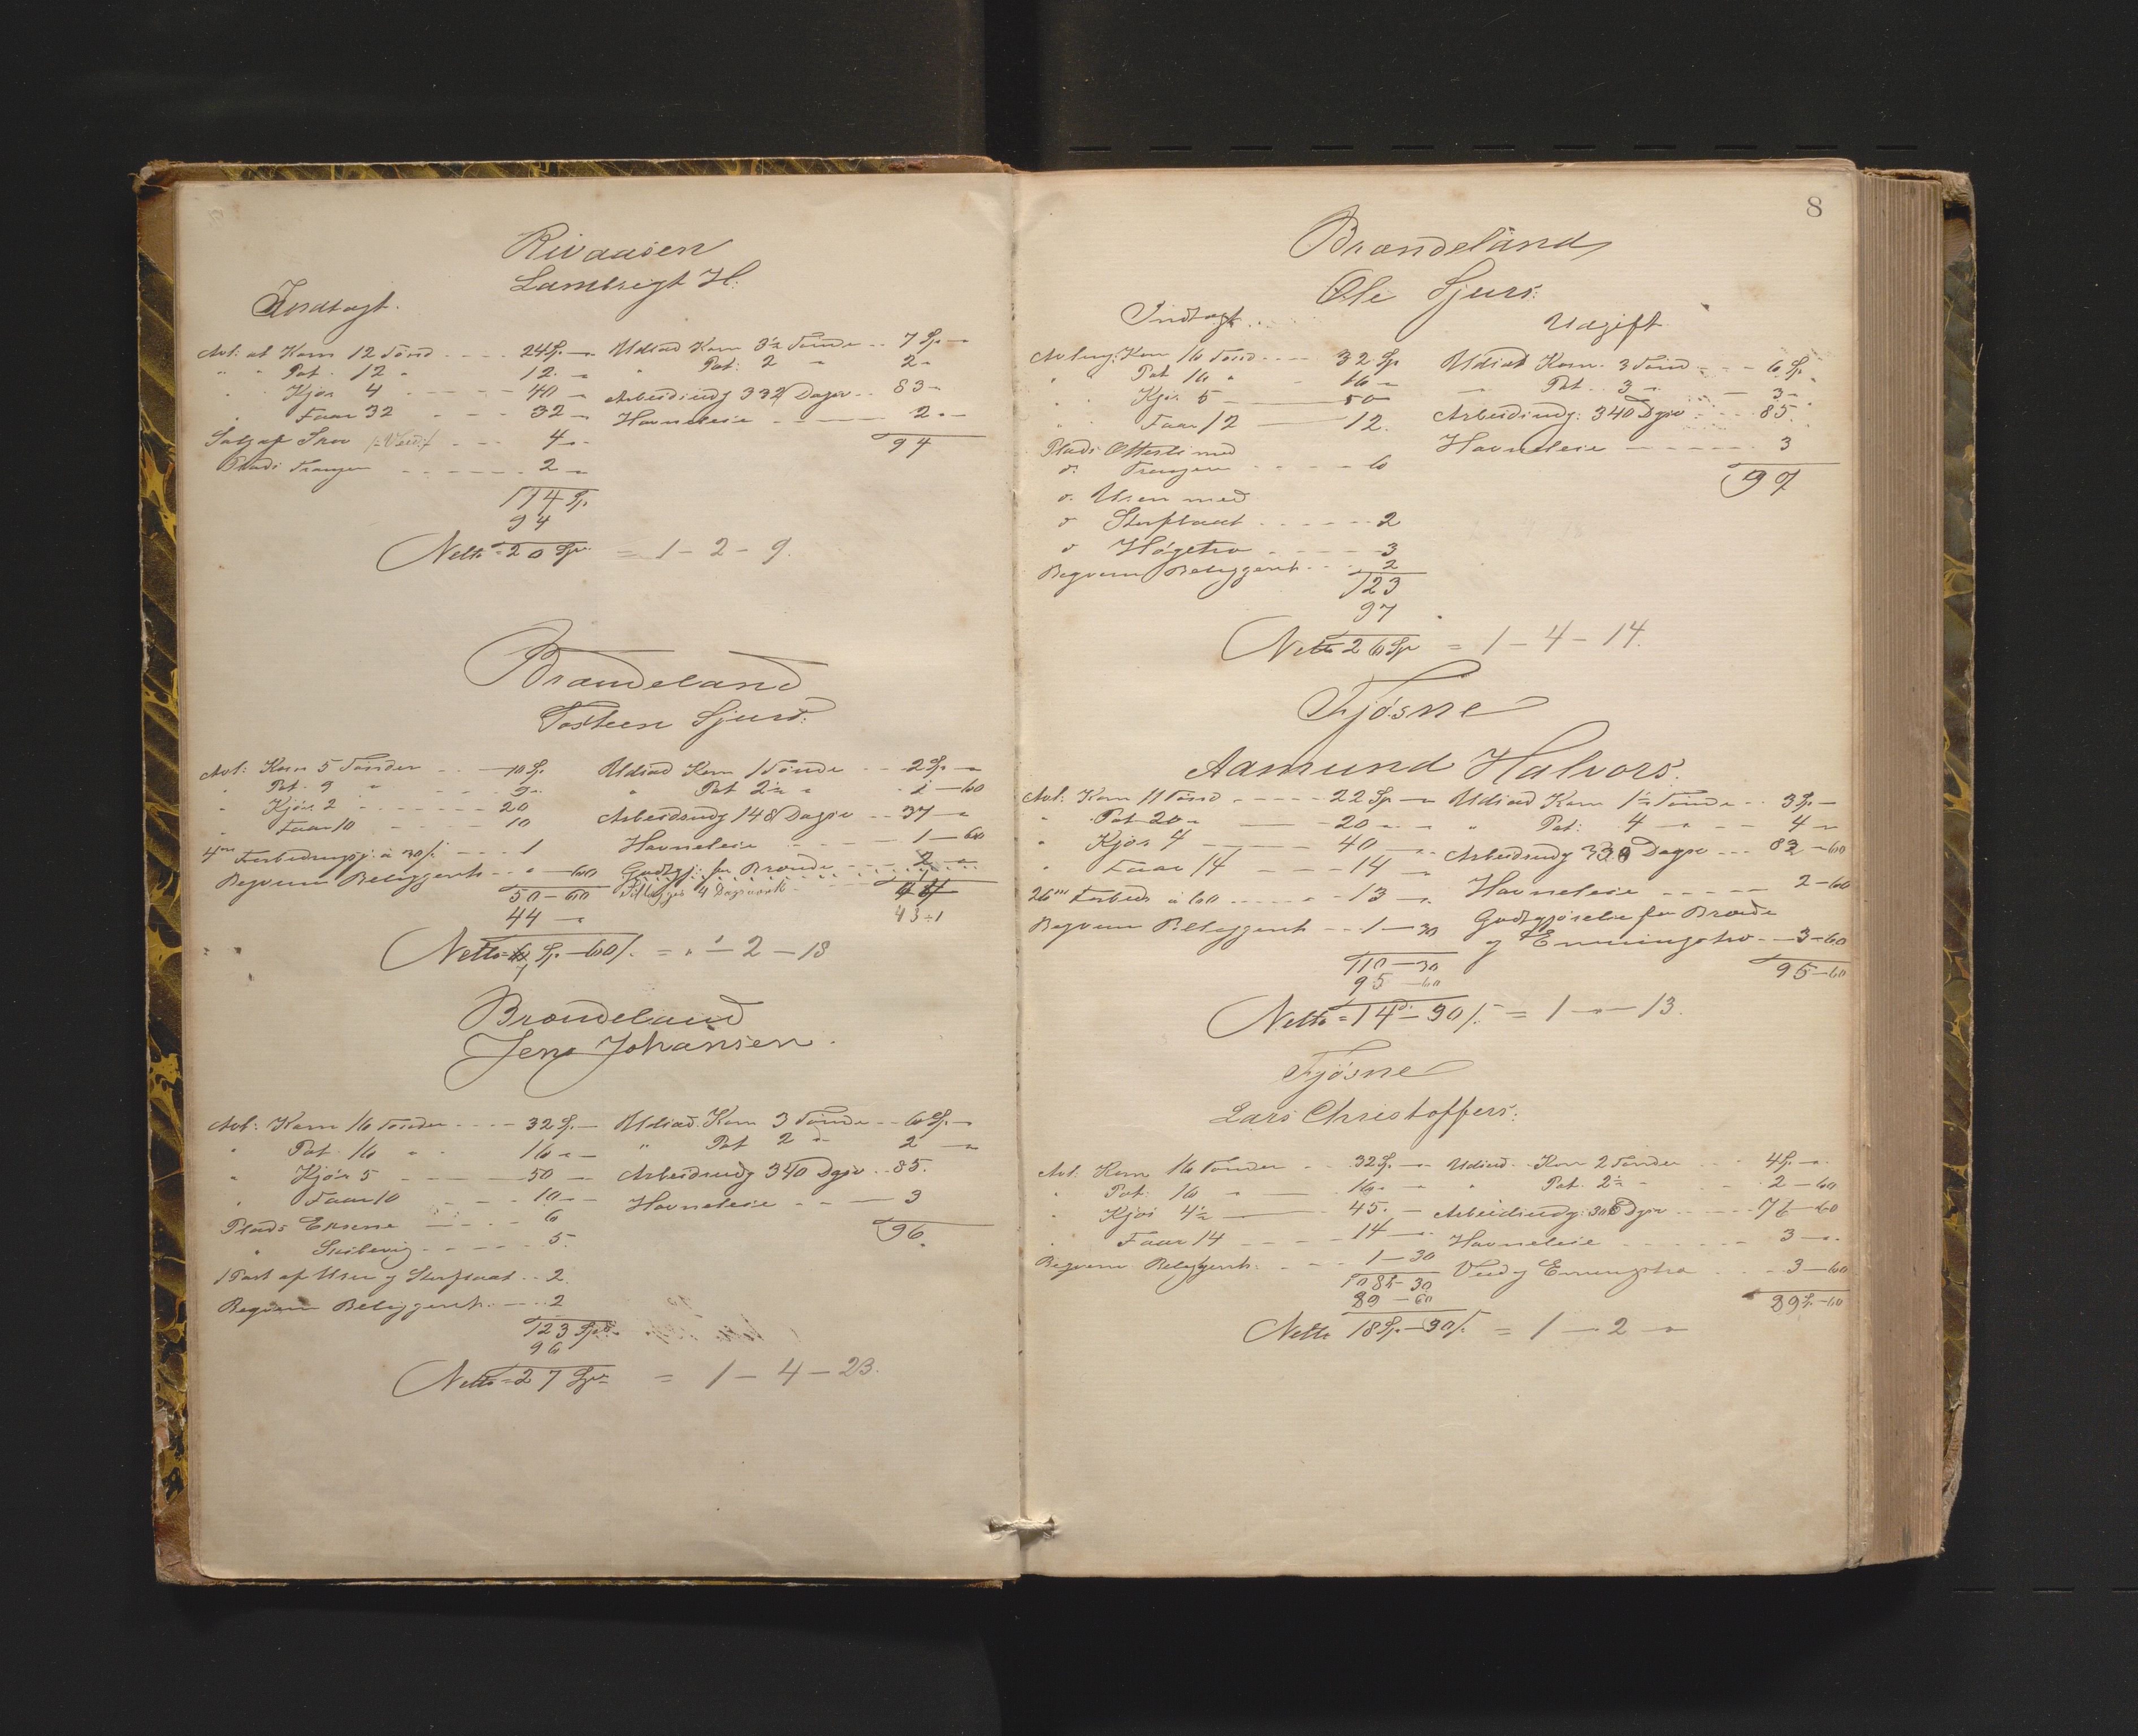 Rivaasen
Lambregt H:
Indtægt.
Avl: at Korn 12 Tønd - - - - 24 Sp. —
" " Pot. 12 " 12 - "
" " Kjør 4 - - - - 40 - "
" Faar 32 - - - - 32 - "
Salg af Skov - - - 4 - "
Plads Trangen - - - - - - 2 - "
114 Sp.
94
Netto = 20 Sp. = 1 - 2 - 9.
Udsæd Korn 3½ Tønde - - 7 Sp. —
" Pot: 2 " 2 - "
Arbeidsudg 332 Dager - - 83 -
Havneleie - - - - 2 - —
94
Brandeland
Tosteen Sjurs:
Avl: Korn 5 Tønder - - — 10 Sp.
" Pot. 9 " - - - 9 - "
" Kjør 2 - - - - - - 20
" Faar 10 - - - - 10
Forbedringsj. a 30 /. - - - 1
Beqvem Beliggenh. - - " — 60
50 - 60
44 — "
Netto = Sp. — 60 /. = " - 2 - 18
Udsæd Korn 1 Tønde - - 2 Sp — "
" Pot 2½ " - 2 — 60
Arbeidsudg 148 Dager - - 37 — "
Havneleie - - - - - 1 — 60
Godtgj: for Brænde - - - - 2 - "
4 Dagsverk
44
43 ÷ 1
Brandeland
Jens Johansen.
Avl: Korn 16 Tønder - - - - 32 Sp. —
" Pot. 16 " - 16 " —
" Kjør 5 - - - - — 50 — "
" Faar 10 - - - - 10 - —
Plads Ersene - - - 6
" - - - - - 5.
1 Part af Usen og Storflaat - - 2.
Beqvem Beliggenh. - — - 2
123 Spd.
96
Netto = 27 Spd = 1 - 4 - 23.
Udsæd. Korn 3 Tønde - - 6 Sp. —
" Pot 2 " 2 — "
Arbeidsudg 340 Dgsv - - 85.
Havneleie - - — 3
96.
8
Brandeland
Ole Sjurs:
Indtægt.
Avling: Korn 16 Tønd - - - - 32 Sp
" Pot 16 " - 16 - "
" Kjør 5 ——— 50 —
" Faar 12 —— 12.
Plads Ottersti med
do. Trangen - - - - - 6
do. Usen med
do Storflaat - - - - - - 2
do Høgetro - - - - - 3
Beqvem Beliggenh. - - - 2
123
97
Netto 26 Sp = 1 - 4 - 14.
Udgift
Udsæd Korn. 3 Tønd - - - 6 Sp. "
— Pot. 3 " - — 3 - "
Arbeidsudg: 340 Dgsv - - - - 85.
Havneleie - - - - - - 3
97
Fjøsne
Aamund Halvors.
Avl: Korn 11 Tønd - - - - - 22 Sp — "
" Pot 20 " —— 20 - "
" Kjør 4 ——— 40 — "
" Faar 14 - - - - 14 — "
26 Forbedr a 60 - - - - - - 13 — "
Beqvem Beliggenh - - - 1 — 30
110 — 30
95 — 60
Netto = 14 — 90 /. = 1 — " — 13.
Udsæd Korn 1½ Tønde - - 3 Sp —
" Pot: 4 — " - - 4 — "
Arbeidsudg 330 Dagsv - - - 82 — 60
Havneleie - - - - - 2 — 60
Godtgjørelse for Brænde
og Emningstræ - - 3 — 60
95 — 60
Fjøsne
Lars Christoffers:
Avl: Korn 16 Tønder - - 32 Sp. — "
" Pot: 16 " — 16 - "
" Kjør 4½ —— 45. —
" Faar 14 - - - - 14 — "
Beqvem Beliggenh. - - - - 1 — 30
108 Sp - 30
89 — 60
Netto 18 Sp. — 30 /. = 1 — 2 — "
Udsæd - Korn 2 Tønder - - - 4 Sp. — "
" Pot. 2½ " - - 2 — 60
Arbeidsudg: 306 Dgsv - - - - 76 — 60
Havneleie - - - - - - - 3 — "
Ved og Emningstræ - - - - 3 — 60
89 Sp. — 60